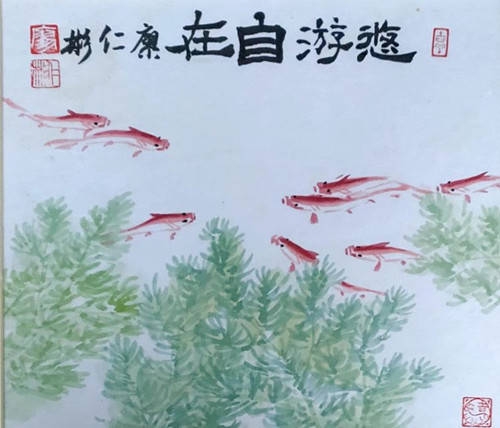 悠游自在 康仁彬